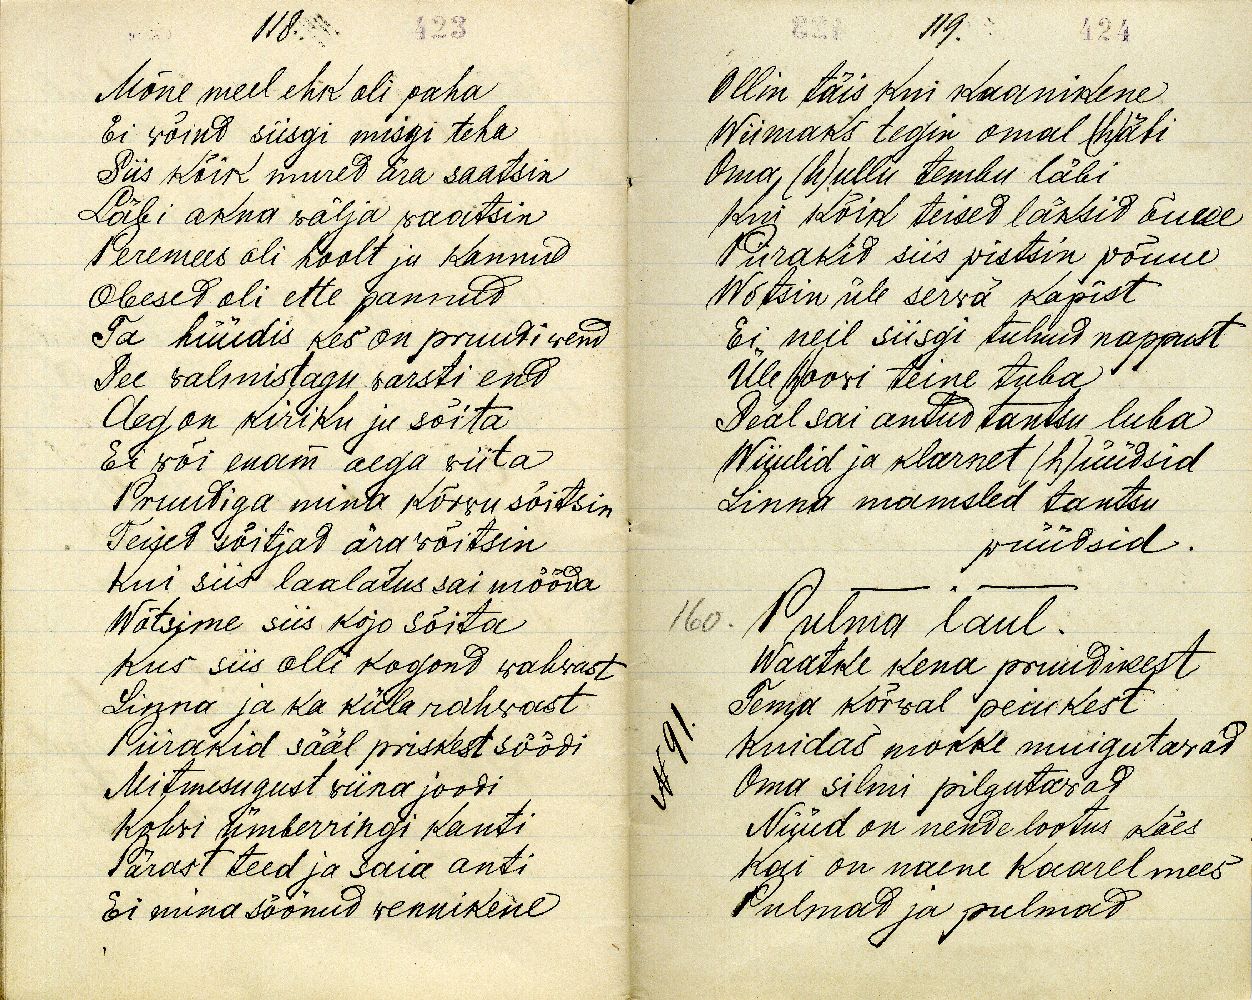 118.
423
Mõne meel ehk oli paha
Ei wõind siisgi misgi teha
Siis kõik mured ära saatsin
Läbi akna wälja waatsin
Peremees oli hoolt ju kannud
Obesed oli ette pannud
Ta hüüdis kes on pruudi wend
See walmistagu warsti end
Aeg on kiriku ju sõita
Ei wõi enam̄ aega wiita
Pruudiga mina kõrwu sõitsin
Teised sõitjad ära wõitsin
Kui siis laalatus sai mööda
Wõtsime siis kojo sõita
Kus siis olli kogond rahwast
Linna ja ka küla rahwast
Piirakid sääl priskest söödi
Mitmesugust wiina joodi
Kohwi ümberringi kanti
Pärast teed ja saia anti
Ei mina söönud wennikene
119.
424
Ollin täis kui kaanikene
Wiimaks tegin omal (h)äbi
Oma (h)ullu tembu läbi
Kui kõik teised läksid õuue
Piirakid siis pistsin põuue
Wõtsin üle serwä kapist
Ei neil siisgi tulnud nappust
Üle hoowi teine tuba
Seal sai antud tantsu luba
Wiiulid ja klarnet (h)üüdsid
Linna mamsled tantsu
püüdsid.
160. Pulma laul.
Waatke kena pruudikest
Tema kõrwal peiukest
N 91.
Kuidas mokke muigutawad
Oma silmi pilgutawad
Nüüd on nende lootus käes
Kai on naene Kaarel mees
Pulmad ja pulmad